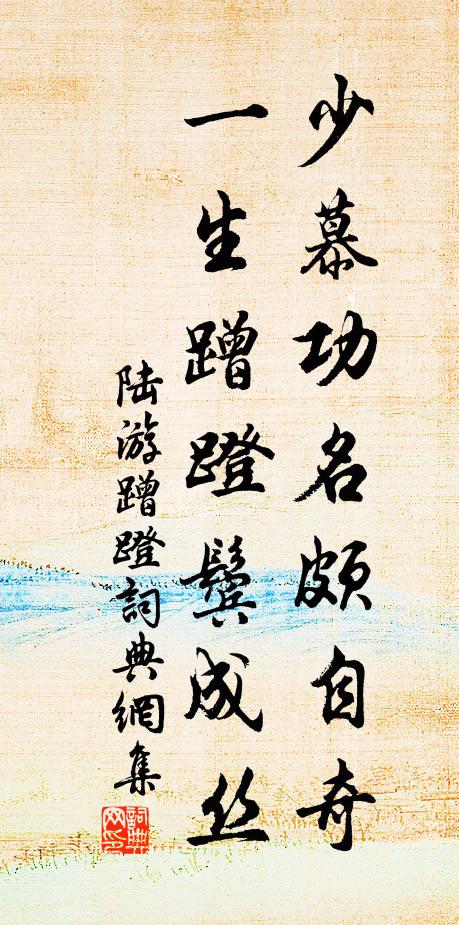 少慕功名頗自奇
一生蹭蹬鬓成丝
陆游蹭蹬詞典網集
詞典网印